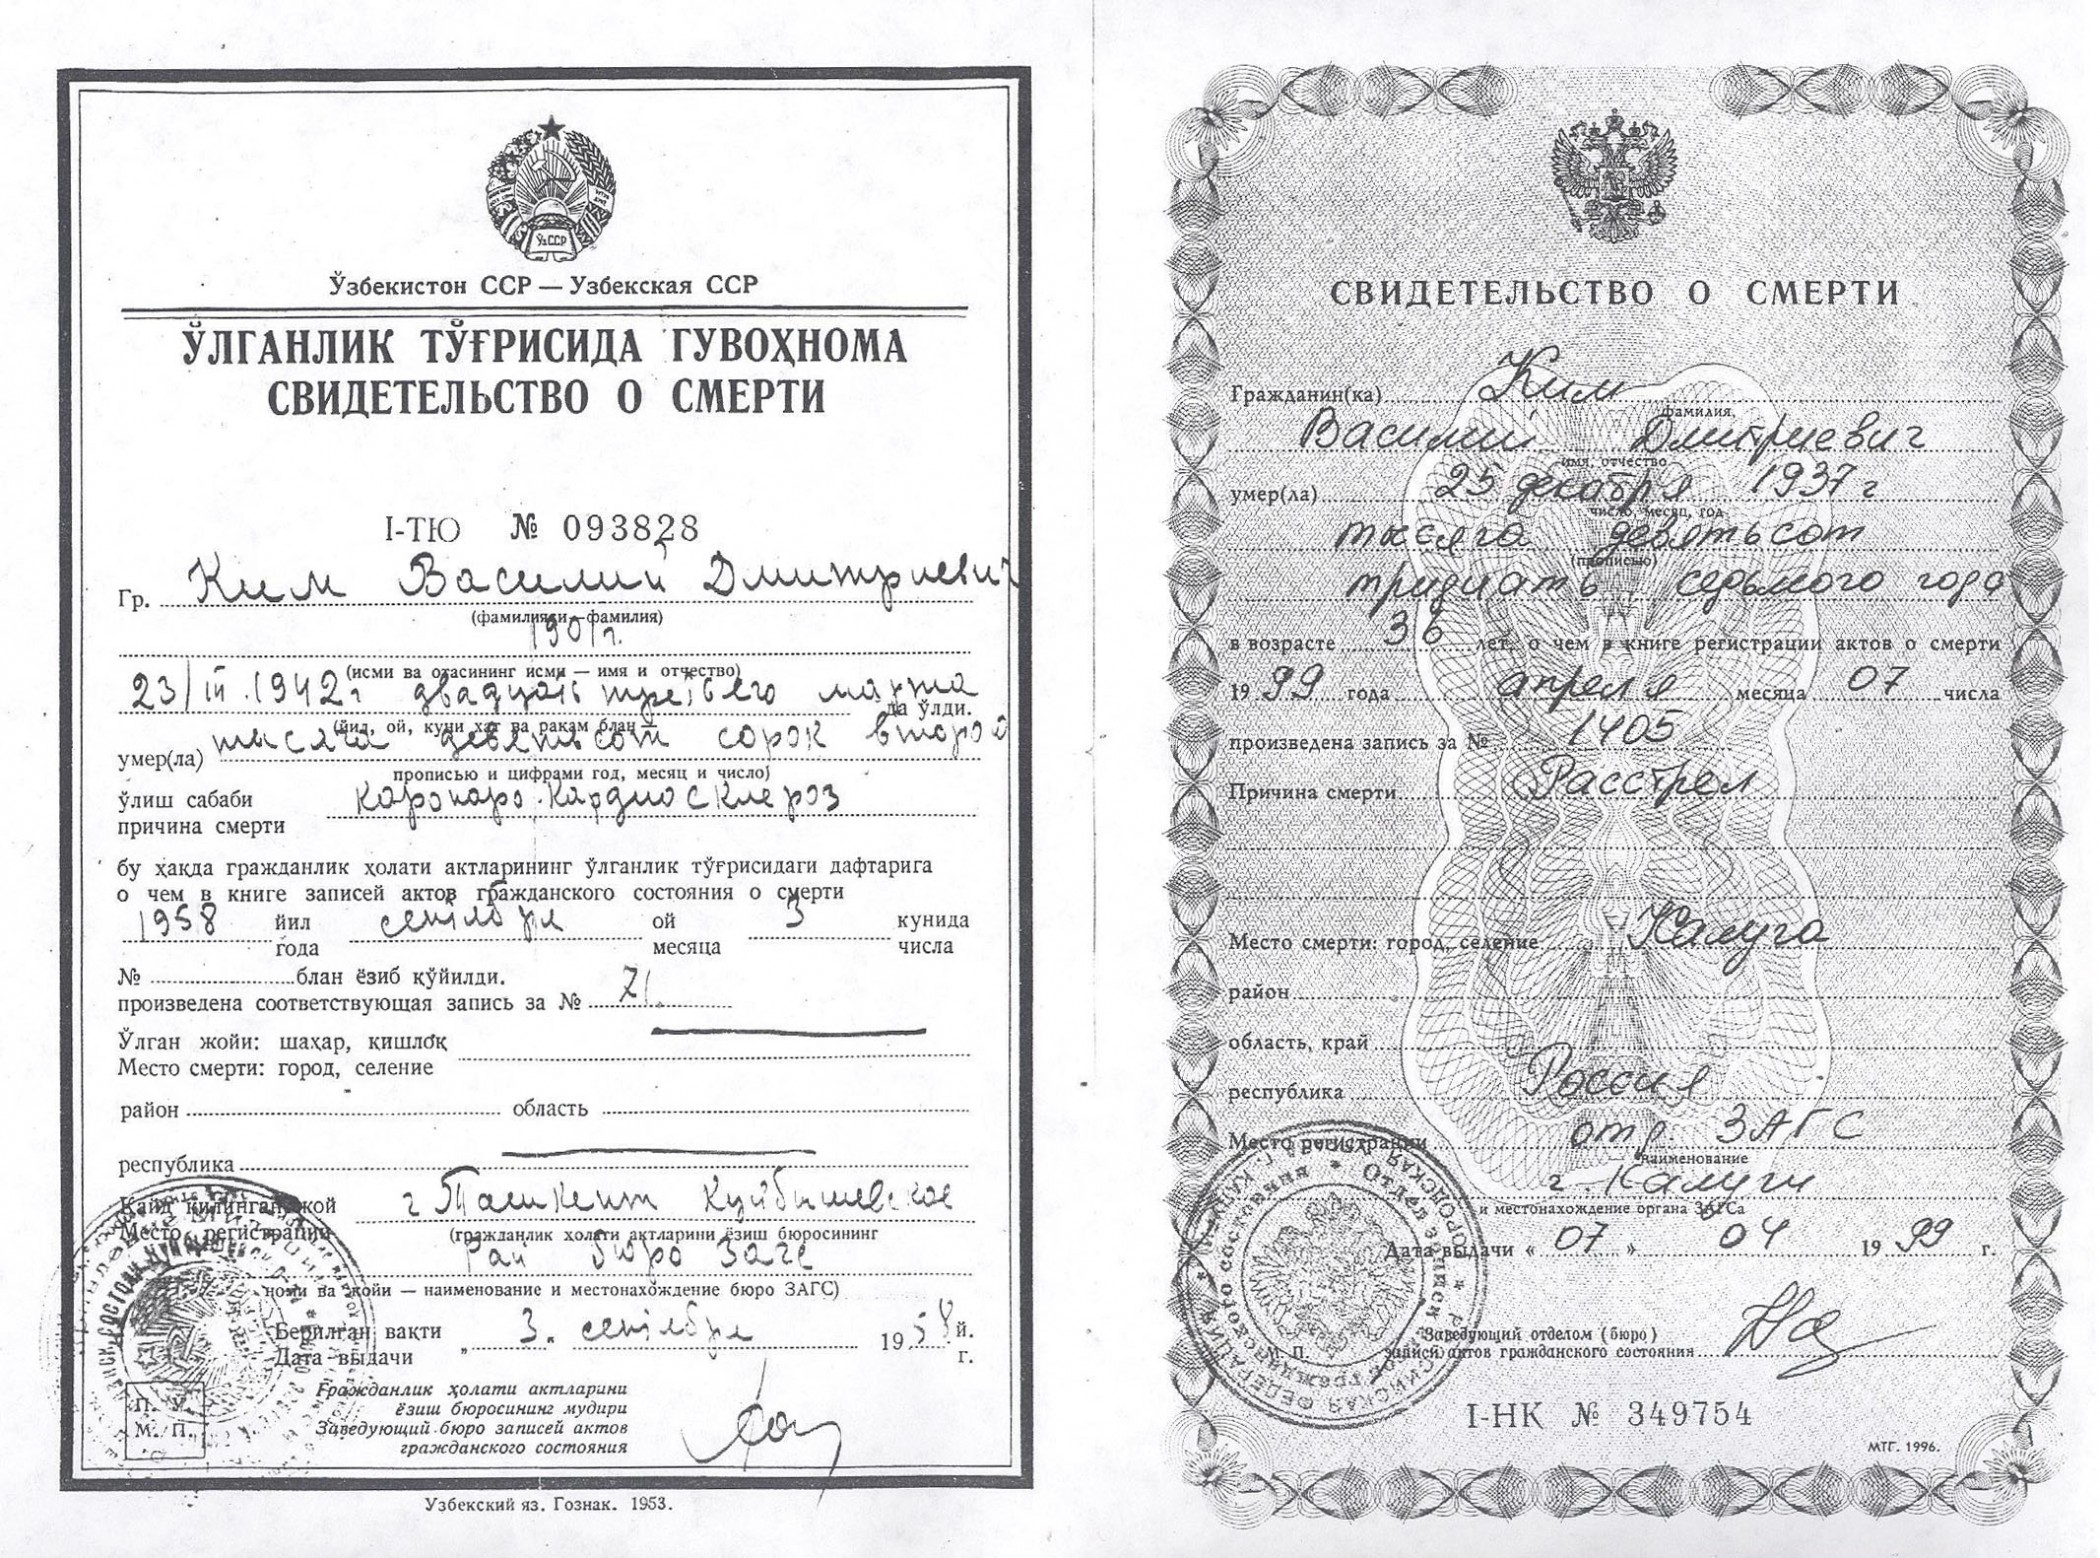 ЎзССР
Ўзбекистон ССР — Узбекская ССР
ЎЛГАНЛИК ТЎҒРИСИДА ГУВОҲНОМА
СВИДЕТЕЛЬСТВО О СМЕРТИ
I-ТЮ № 093828
Гр. Ким Василий Дмитриевич
(фамилияси—фамилия)
1901 г.
(исми ва отасининг исми — имя и отчество)
23/III.1942 г двадцать третьего марта
да ўлди.
(йил, ой, куни хат ва рақам блан —
умер(ла) тысяча девятьсот сорок второй
прописью и цифрами год, месяц и число)
ўлиш сабаби
причина смерти
бу ҳақда гражданлик ҳолати актларининг ўлганлик тўғрисидаги дафтарига
о чем в книге записей актов гражданского состояния о смерти
1958 йил сентября ой 3 кунида
года месяца числа
№ блан ёзиб қўйилди.
произведена соответствующая запись за № 71.
Ўлган жойи: шаҳар, қишлоқ
Место смерти: город, селение
район область
республика
Қайд қилинган жой г Ташкент Куйбышевское
Место регистрации
(гражданлик ҳолати актларини ёзиш бюросининг
Рай бюро Загс
номи ва жойи — наименование и местонахождение бюро ЗАГС)
Берилган вақти „ 3. сентября 1958 й.
Дата выдачи г.
Гражданлик ҳолати актларини
ёзиш бюросининг мудири
П. У.
М. П.
Заведующий бюро записей актов
гражданского состояния
Узбекский яз. Гознак. 1953.
СВИДЕТЕЛЬСТВО О СМЕРТИ
Гражданин(ка) Ким
фамилия,
Василий Дмитриевич
имя, отчество
умер(ла) 25 декабря 1937 г
число, месяц, год
тысяча девятьсот
(прописью)
тридцать седьмого года
в возрасте 36 лет, о чем в книге регистрации актов о смерти
19 99 года апреля месяца 07 числа
произведена запись за № 1405
Причина смерти Расстрел
Место смерти: город, селение Калуга
район
область, край
республика Россия
Место регистрации отд. ЗАГС
наименование
г. Калуги
и местонахождение органа ЗАГСа
Дата выдачи « 07 » 04 19 99 г.
Заведующий отделом (бюро)
М. П. записи актов гражданского состояния
I-НК № 349754
МТГ. 1996.